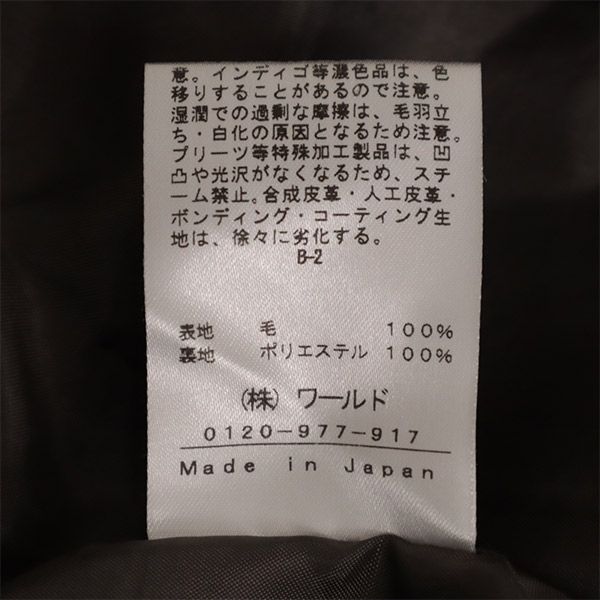 意。インディゴ等濃色品は、色
移りすることがあるので注意。
湿潤での過剰な摩擦は、毛羽立
ち・白化の原因となるため注意。
プリーツ等特殊加工製品は、凹
凸や光沢がなくなるため、スチ
ーム禁止。合成皮革・人工皮革・
ボンディング・コーティング生
地は、徐々に劣化する。
B-2
表地 毛 100%
裏地 ポリエステル 100%
(株) ワールド
0120-977-917
Made in Japan